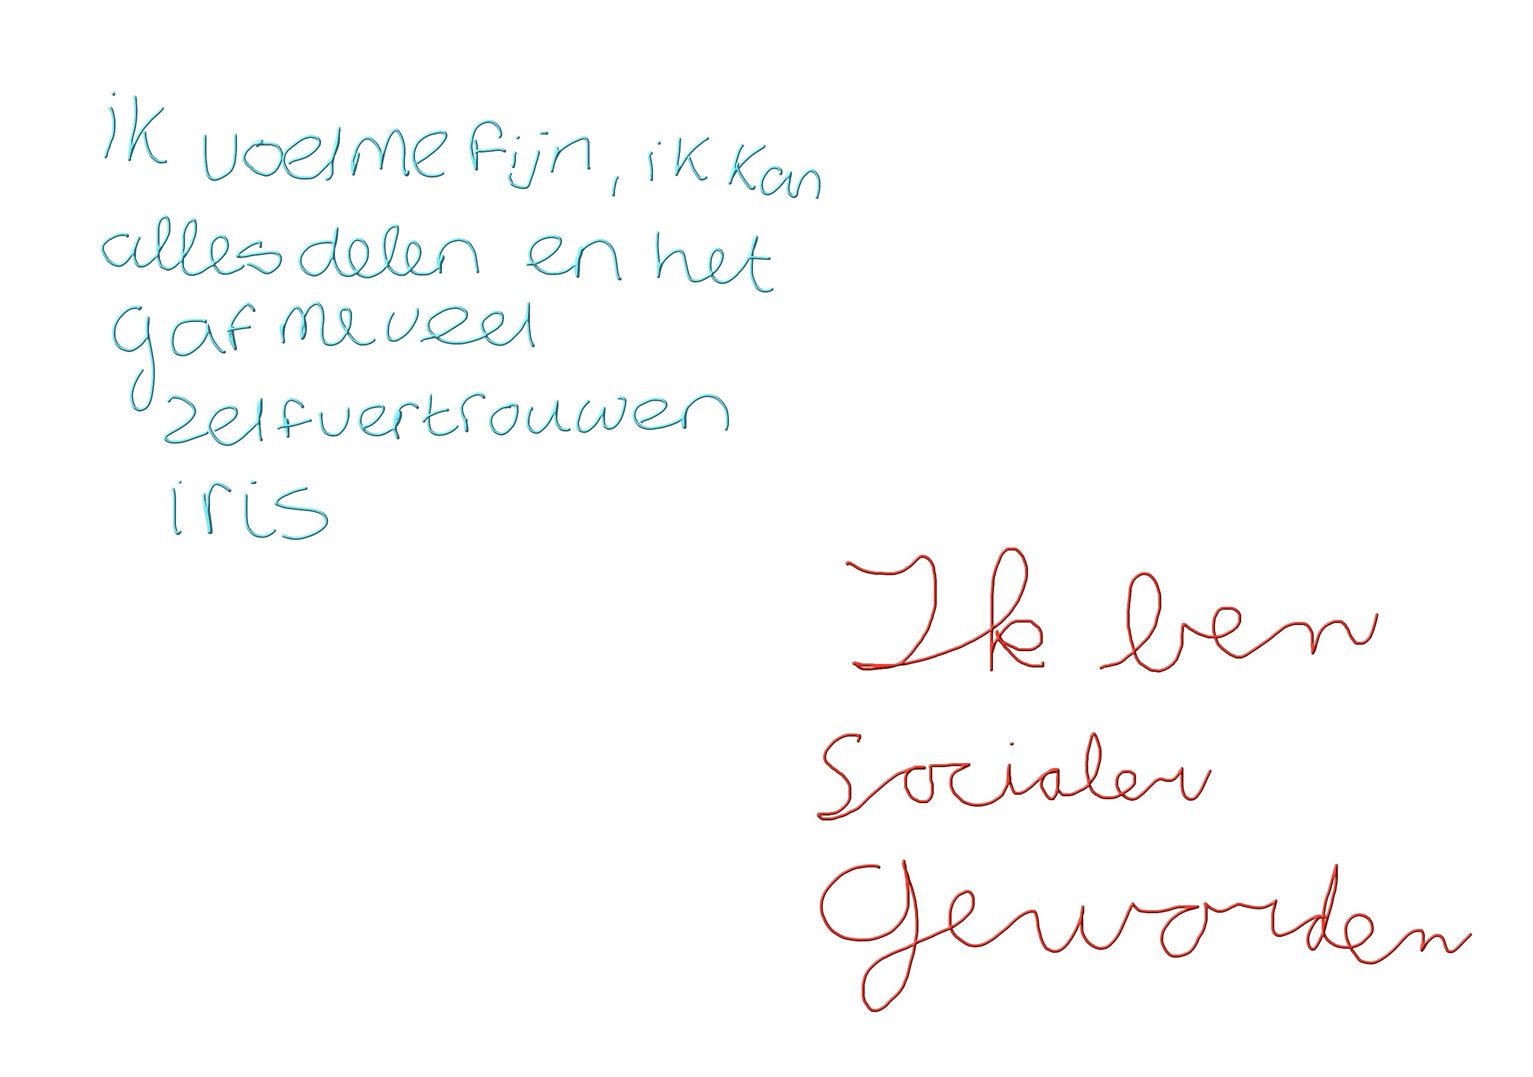 ik voel me fijn, ik kan
alles delen en het
gaf me veel
zelfvertrouwen
iris
Ik ben
Socialer
Geworden